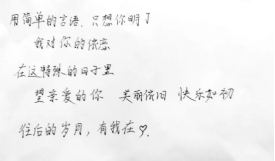 用简单的言语,只想你明了
我对你的依恋
在这特殊的日子里
望亲爱的你 美丽依旧 快乐如初
往后的岁月,有我在♡.